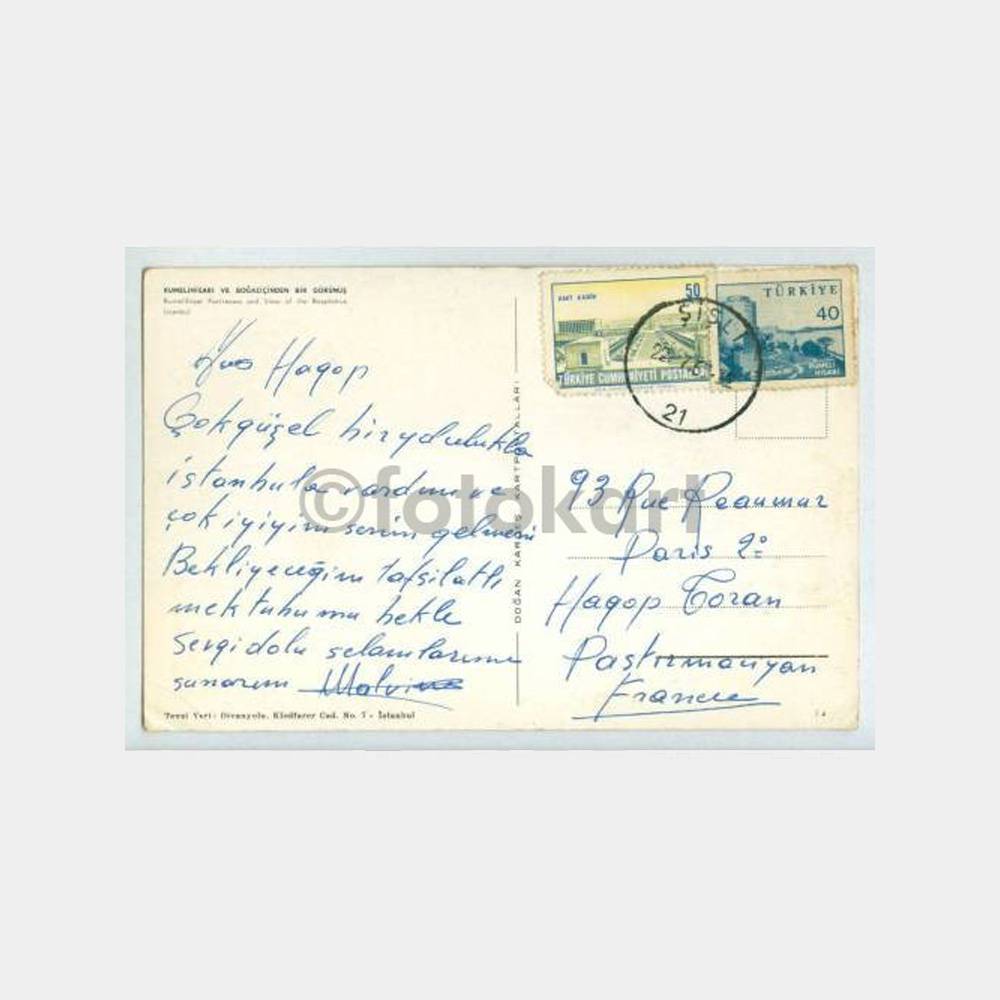 RUMELİHİSARI VE BOĞAZİÇİNDEN BİR GÖRÜNÜŞ
Rumelihisar Fortresses and View of the Bosphorus
İstanbul
Hagop
Çok güzel bir yolculukla
istanbula vardım ve
çok iyiyim senin gelmeni
Bekliyeceğim tafsilatlı
mektubumu bekle
sevgi dolu selamlarımı
sunarım
Tevzi Yeri: Divanyolu, Klodfarer Cad. No. 7 - İstanbul
DOĞAN KARDEŞ KARTPOSTALLARI
50
TÜRKİYE CUMHURİYETİ POSTALARI
TÜRKİYE
40
RUMELİ
HİSARI
ŞİŞLİ
21
93 Rue Reaumur
Paris 2º
Hagop Toran
Pastırmacıyan
France
©fotokart